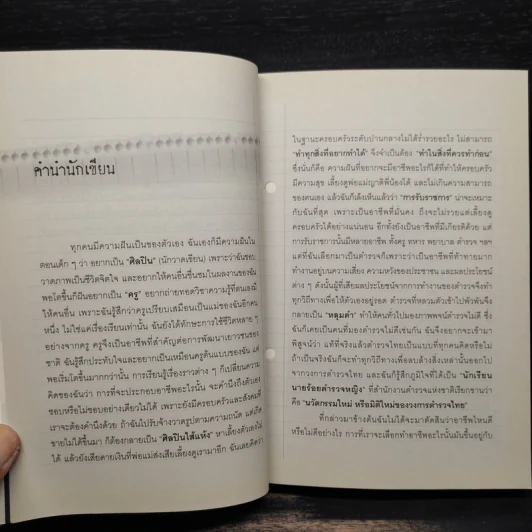 คำนำนักเขียน
ทุกคนมีความฝันเป็นของตัวเอง ฉันเองก็มีความฝันใน
ตอนเด็ก ๆ ว่า อยากเป็น "ศิลปิน" (นักวาดเขียน) เพราะว่าฉันชอบ
วาดภาพเป็นชีวิตจิตใจ และอยากให้คนอื่นชื่นชมในผลงานของฉัน
พอโตขึ้นก็ฝันอยากเป็น "ครู" อยากถ่ายทอดวิชาความรู้ที่ตนเองมี
ให้คนอื่น เพราะฉันรู้สึกว่าครูเปรียบเสมือนเป็นแม่ของฉันอีกคน
หนึ่ง ไม่ใช่แค่เรื่องเรียนเท่านั้น ฉันยังได้ทักษะการใช้ชีวิตหลาย ๆ
อย่างจากครู ครูจึงเป็นอาชีพที่สำคัญต่อการพัฒนาเยาวชนของ
ชาติ ฉันรู้สึกประทับใจและอยากเป็นเหมือนครูต้นแบบของฉัน แต่
พอเริ่มโตขึ้นมากกว่านั้น การเรียนรู้เรื่องราวต่าง ๆ ก็เปลี่ยนความ
คิดของฉันว่า การที่จะประกอบอาชีพอะไรนั้น จะคำนึงถึงตัวเอง
ชอบหรือไม่ชอบอย่างเดียวไม่ได้ เพราะยังมีครอบครัวและสังคมที่
เราจะต้องคำนึงด้วย ถ้าฉันไปรับจ้างวาดรูปตามความถนัด แต่เกิด
ขายไม่ได้ขึ้นมา ก็ต้องกลายเป็น "ศิลปินไส้แห้ง" หาเลี้ยงตัวเองไม่
ได้ แล้วยังเสียดายเงินที่พ่อแม่ส่งเสียเลี้ยงดูเรามาอีก ฉันเลยคิดว่า
ในฐานะครอบครัวระดับปานกลางไม่ได้ร่ำรวยอะไร ไม่สามารถ
"ทำทุกสิ่งที่อยากทำได้" จึงจำเป็นต้อง "ทำในสิ่งที่ควรทำก่อน"
ซึ่งนั่นก็คือ ความฝันที่อยากจะมีอาชีพอะไรก็ได้ที่ทำให้ครอบครัว
มีความสุข เลี้ยงดูพ่อแม่ญาติพี่น้องได้ และไม่เกินความสามารถ
ของตนเอง แล้วฉันก็เล็งเห็นแล้วว่า "การรับราชการ" น่าจะเหมาะ
กับฉันที่สุด เพราะเป็นอาชีพที่มั่นคง ถึงจะไม่รวยแต่เลี้ยงดู
ครอบครัวได้อย่างแน่นอน อีกทั้งยังเป็นอาชีพที่มีเกียรติด้วย แต่
การรับราชการนั้นมีหลายอาชีพ ทั้งครู ทหาร พยาบาล ตำรวจ ฯลฯ
แต่ที่ฉันเลือกมาเป็นตำรวจก็เพราะว่าเป็นอาชีพที่ท้าทายมาก
ทำงานอยู่บนความเสี่ยง ความหวังของประชาชน และผลประโยชน์
ต่าง ๆ ดังนั้นผู้ที่เสียผลประโยชน์จากการทำงานของตำรวจจึงทำ
ทุกวิถีทางเพื่อให้ตัวเองอยู่รอด ตำรวจที่หลวมตัวเข้าไปพัวพันจึง
กลายเป็น "หลุมดำ" ทำให้คนทั่วไปมองภาพพจน์ตำรวจไม่ดี ซึ่ง
ฉันก็เคยเป็นคนที่มองตำรวจไม่ดีเช่นกัน ฉันจึงอยากจะเข้ามา
พิสูจน์ว่า แท้ที่จริงแล้วตำรวจไทยเป็นแบบที่ทุกคนคิดหรือไม่
ถ้าเป็นจริงฉันก็จะทำทุกวิถีทางเพื่อลบล้างสิ่งเหล่านั้นออกไป
จากวงการตำรวจไทย และฉันรู้สึกภูมิใจที่ได้เป็น "นักเรียน
นายร้อยตำรวจหญิง" ที่สำนักงานตำรวจแห่งชาติเรียกขานว่า
คือ "นวัตกรรมใหม่ หรือมิติใหม่ของวงการตำรวจไทย"
ที่กล่าวมาข้างต้นฉันไม่ได้จะมาตัดสินว่าอาชีพไหนดี
หรือไม่ดีอย่างไร การที่เราจะเลือกทำอาชีพอะไรนั้นมันขึ้นอยู่กับ